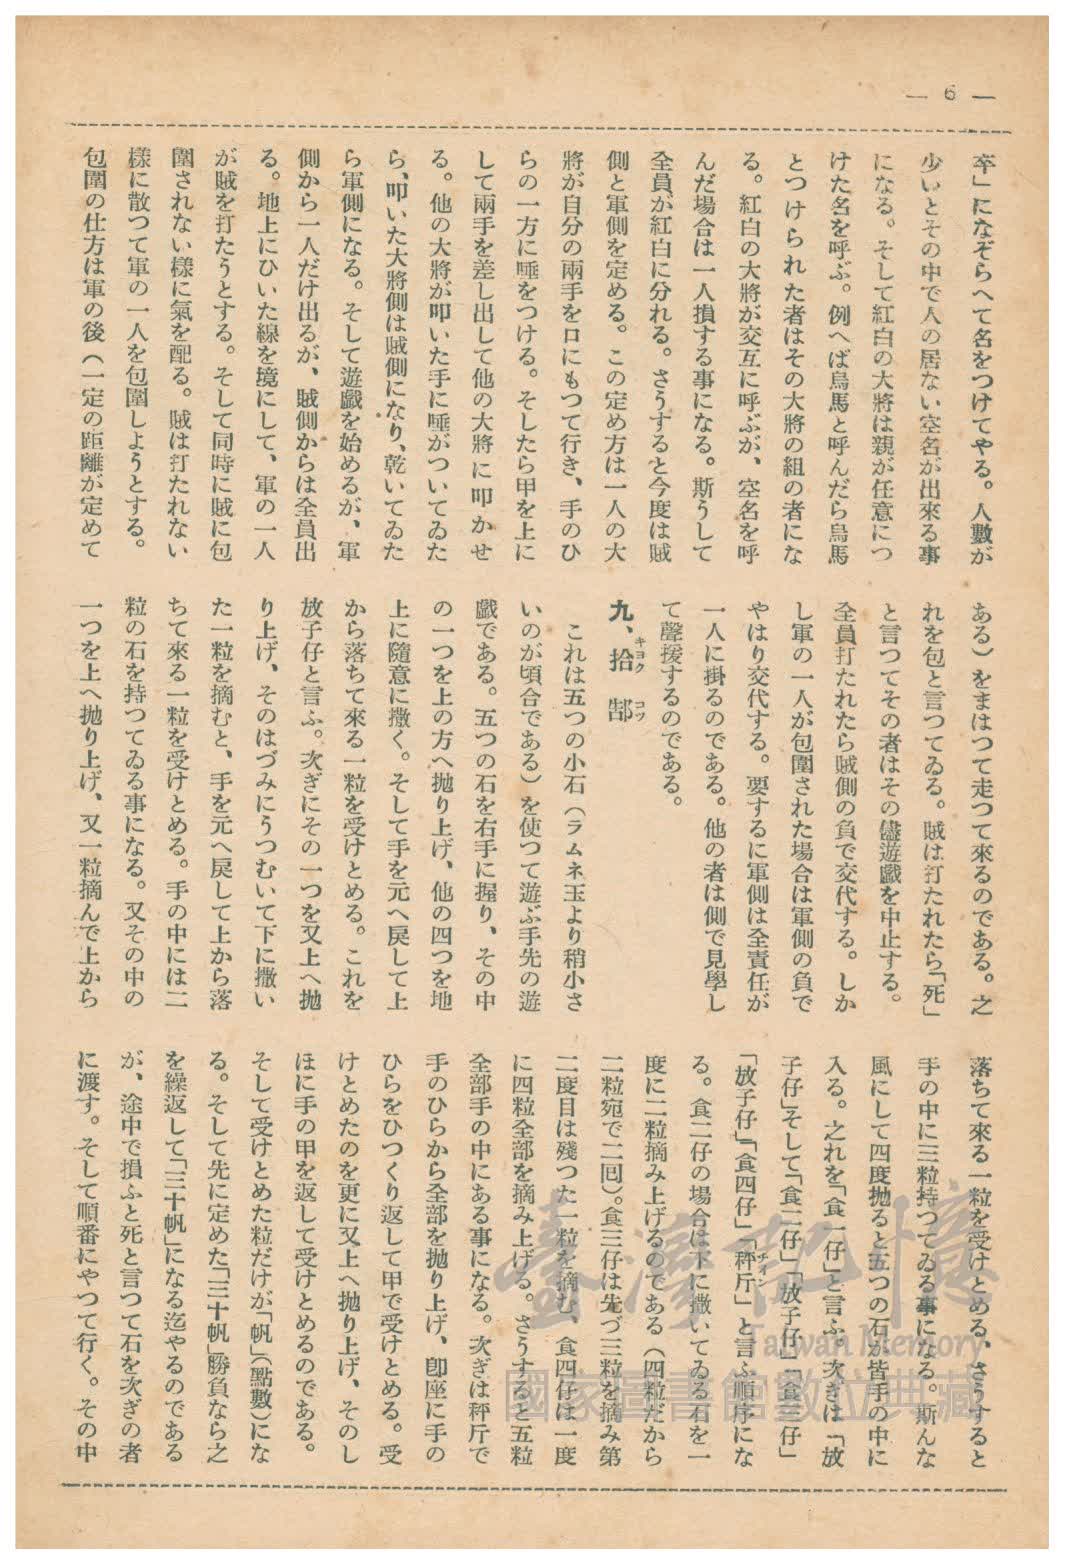 — 6 —
卒」になぞらへて名をつけてやる。人數が
少いとその中で人の居ない空名が出來る事
になる。そして紅白の大將は親が任意につ
けた名を呼ぶ。例へば烏馬と呼んだら烏馬
とつけられた者はその大將の組の者にな
る。紅白の大將が交互に呼ぶが、空名を呼
んだ場合は一人損する事になる。斯うして
全員が紅白に分れる。さうすると今度は賊
側と軍側を定める。この定め方は一人の大
將が自分の兩手を口にもつて行き、手のひ
らの一方に唾をつける。そしたら甲を上に
して兩手を差し出して他の大將に叩かせ
る。他の大將が叩いた手に唾がついてゐた
ら、叩いた大將側は賊側になり、乾いてゐた
ら軍側になる。そして遊戲を始めるが、軍
側から一人だけ出るが、賊側からは全員出
る。地上にひいた線を境にして、軍の一人
が賊を打たうとする。そして同時に賊に包
圍されない樣に氣を配る。賊は打たれない
樣に散つて軍の一人を包圍しようとする。
包圍の仕方は軍の後（一定の距離が定めて
ある）をまはつて走つて來るのである。之
れを包と言つてゐる。賊は打たれたら「死」
と言つてその者はその儘遊戲を中止する。
全員打たれたら賊側の負で交代する。しか
し軍の一人が包圍された場合は軍側の負で
やはり交代する。要するに軍側は全責任が
一人に掛るのである。他の者は側で見學し
て聲援するのである。
九、拾キヨク 郜コツ
これは五つの小石（ラムネ玉より稍小さ
いのが頃合である）を使つて遊ぶ手先の遊
戲である。五つの石を右手に握り、その中
の一つを上の方へ抛り上げ、他の四つを地
上に隨意に撒く。そして手を元へ戻して上
から落ちて來る一粒を受けとめる。これを
放子仔と言ふ。次ぎにその一つを又上へ抛
り上げ、そのはづみにうつむいて下に撒い
た一粒を摘むと、手を元へ戻して上から落
ちて來る一粒を受けとめる。手の中には二
粒の石を持つてゐる事になる。又その中の
一つを上へ抛り上げ、又一粒摘んで上から
落ちて來る一粒を受けとめる、さうすると
手の中に三粒持つてゐる事になる。斯んな
風にして四度抛ると五つの石が皆手の中に
入る。之れを「食一仔」と言ふ。次ぎは「放
子仔」そして「食二仔」「放子仔」「食三仔」
「放子仔」「食四仔」「秤斤チイン」と言ふ順序にな
る。食二仔の場合は下に撒いてゐる石を一
度に二粒摘み上げるのである（四粒だから
二粒宛で二回）。食三仔は先づ三粒を摘み第
二度目は殘つた一粒を摘む、食四仔は一度
に四粒全部を摘み上げる。さうすると五粒
全部手の中にある事になる。次ぎは秤斤で
手のひらから全部を抛り上げ、卽座に手の
ひらをひつくり返して甲で受けとめる。受
けとめたのを更に又上へ抛り上げ、そのし
ほに手の甲を返して受けとめるのである。
そして受けとめた粒だけが「帆」（點數）にな
る。そして先に定めた「三十帆」勝負なら之
を繰返して「三十帆」になる迄やるのである
が、途中で損ふと死と言つて石を次ぎの者
に渡す。そして順番にやつて行く。その中
臺灣記憶
Taiwan Memory
國家圖書館數位典藏